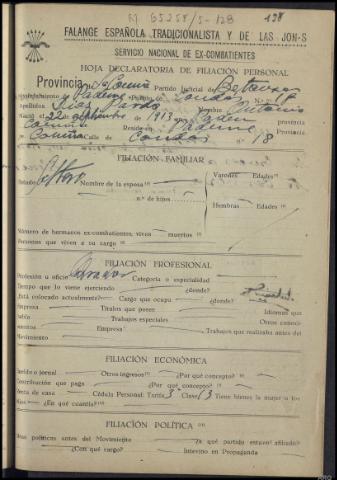 198
FALANGE ESPAÑOLA TRADICIONALISTA Y DE LAS JON-S
SERVICIO NACIONAL DE EX-COMBATIENTES
HOJA DECLARATORIA DE FILIACIÓN PERSONAL
Provincia La Coruña Partido Judicial de Betanzos
Ayuntamiento Paderne Condos
Apellidos Díaz Pardo Nombre Antonio
Nació 22 de septiembre de 1913 en Paderne provincia
Coruña Reside en Paderne provincia
Coruña Calle de Condos n.º 18
FILIACIÓN FAMILIAR
Estado Soltero Nombre de la esposa
Varones Edades
n.º de hijos
Hembras Edades
Número de hermanos ex-combatientes, viven muertos
Personas que viven a su cargo
FILIACIÓN PROFESIONAL
Profesión u oficio Labrador Categoría o especialidad
Tiempo que lo viene ejerciendo ¿donde?
¿Está colocado actualmente? Cargo que ocupa ¿donde?
Empresa Títulos que posee Idiomas que
habla Trabajos especiales Otros conoci-
mientos Empresa Trabajos que realizaba antes del
Movimiento
FILIACIÓN ECONÓMICA
Sueldo o jornal Otros ingresos ¿Por qué concepto?
Contribución que paga ¿Por qué conceptos?
Renta de casa Cédula Personal: Tarifa 3ª Clase 13 Tiene bienes la mujer o los
hijos ¿En qué cuantía?
FILIACIÓN POLÍTICA
Ideas políticas antes del Movimiento ¿A qué partido estuvo afiliado?
¿Con qué cargo? Intervino en Propaganda